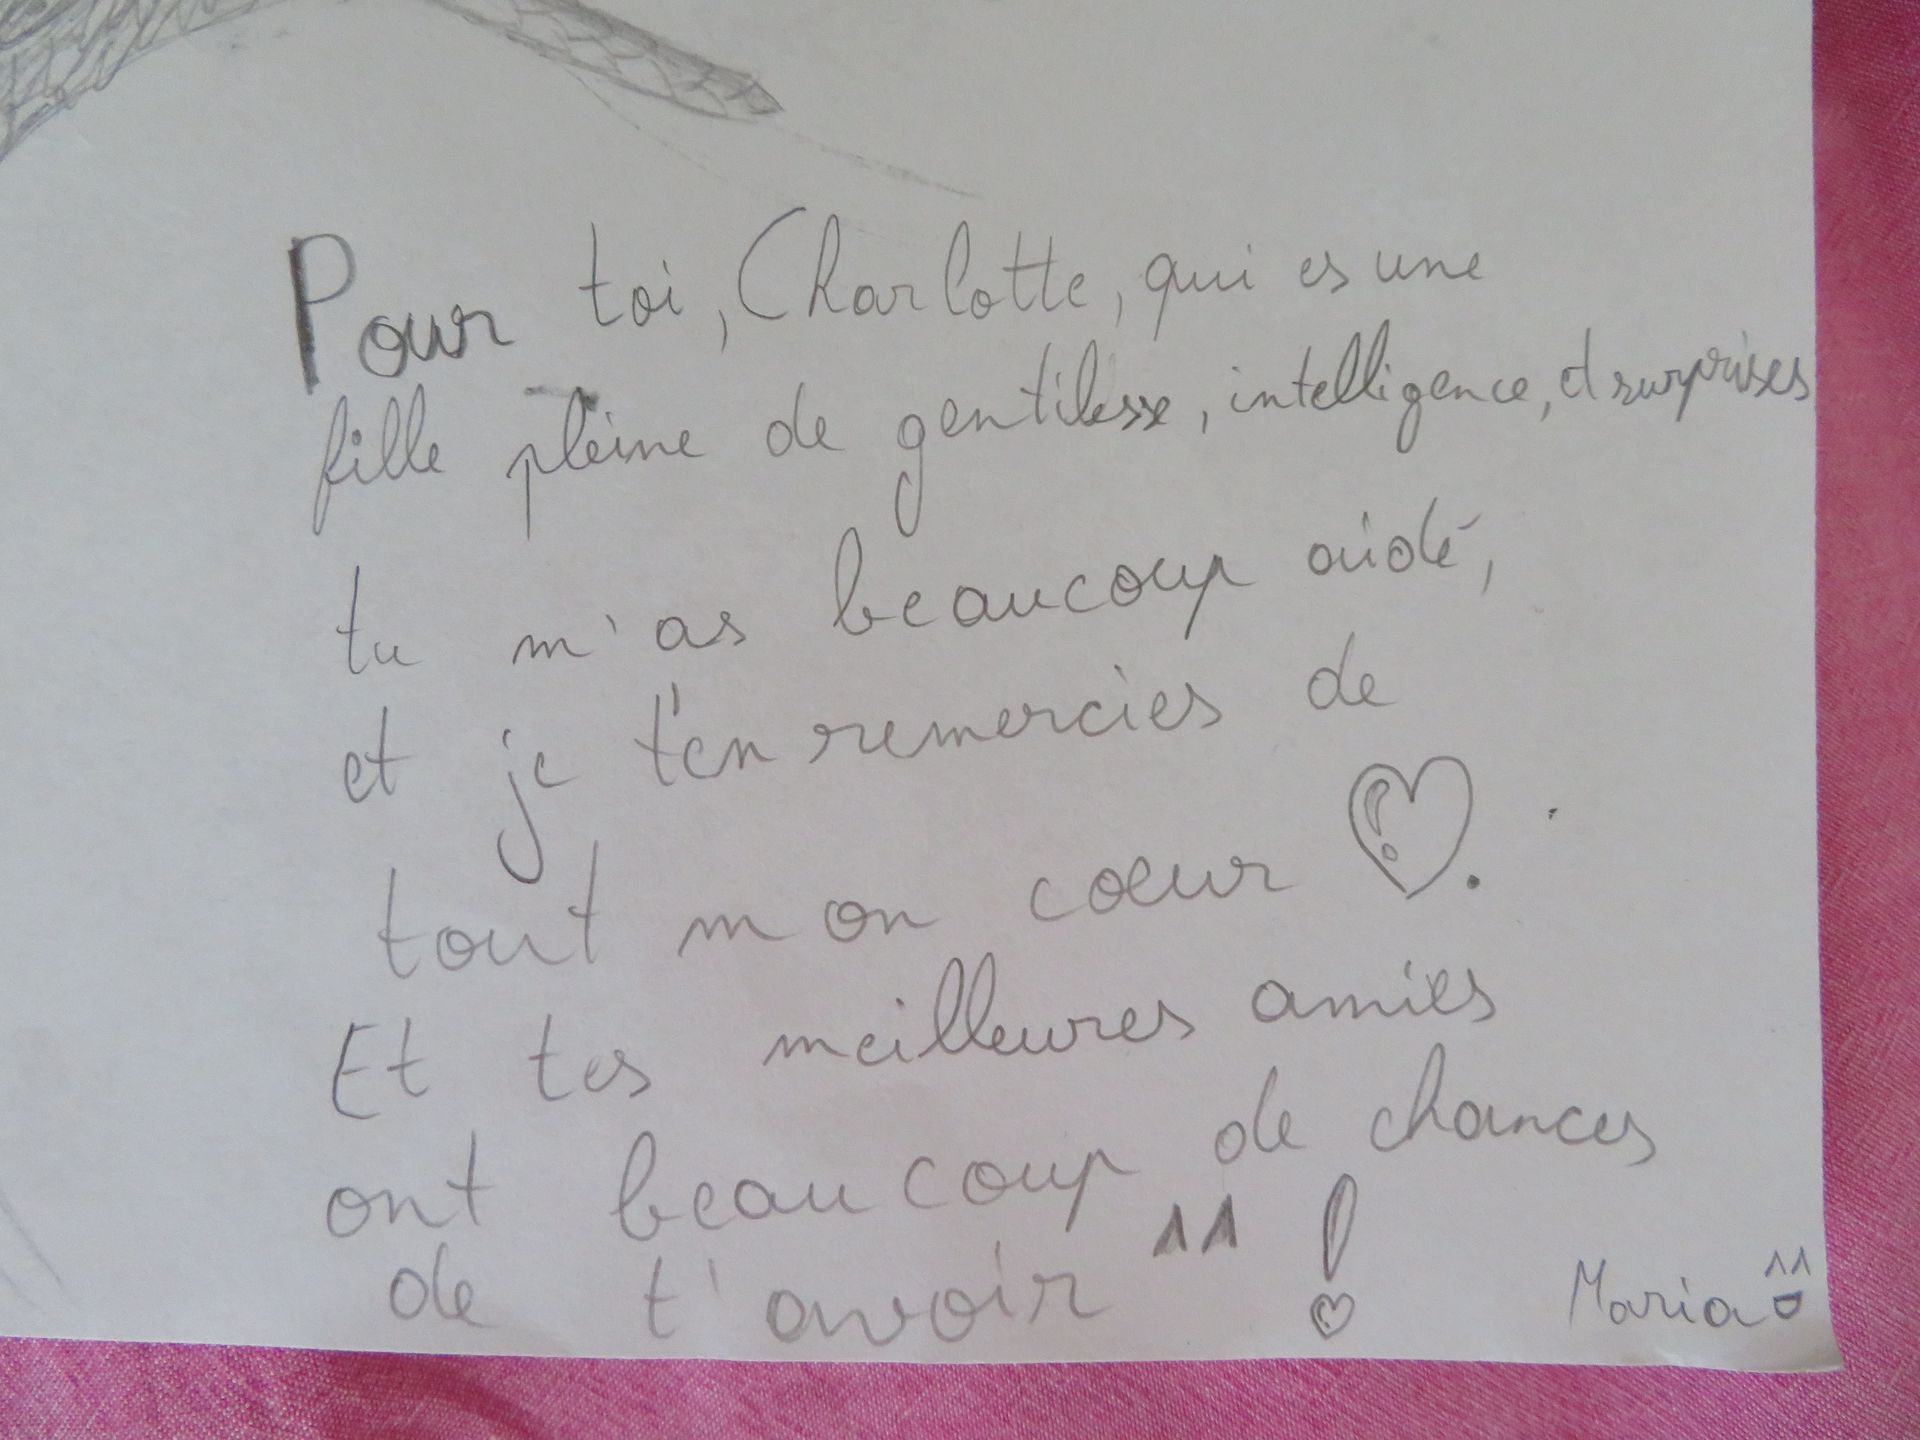 Pour toi, Charlotte, qui es une
fille pleine de gentilesse, intelligence, et surprises
tu m'as beaucoup aidé,
et je t'en remercies de
tout mon cœur ♡.
Et tes meilleures amies
ont beaucoup de chances
de t'avoir ^^ !
Maria ^^